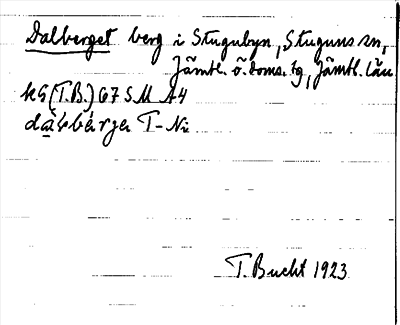 Dalberget berg i Stugubyn, Stuguns sn,
Jämtl. ö. doms. tg, Jämtl. län
kG (T.B.) 67 SM A4
T-Ni
T. Bucht 1923